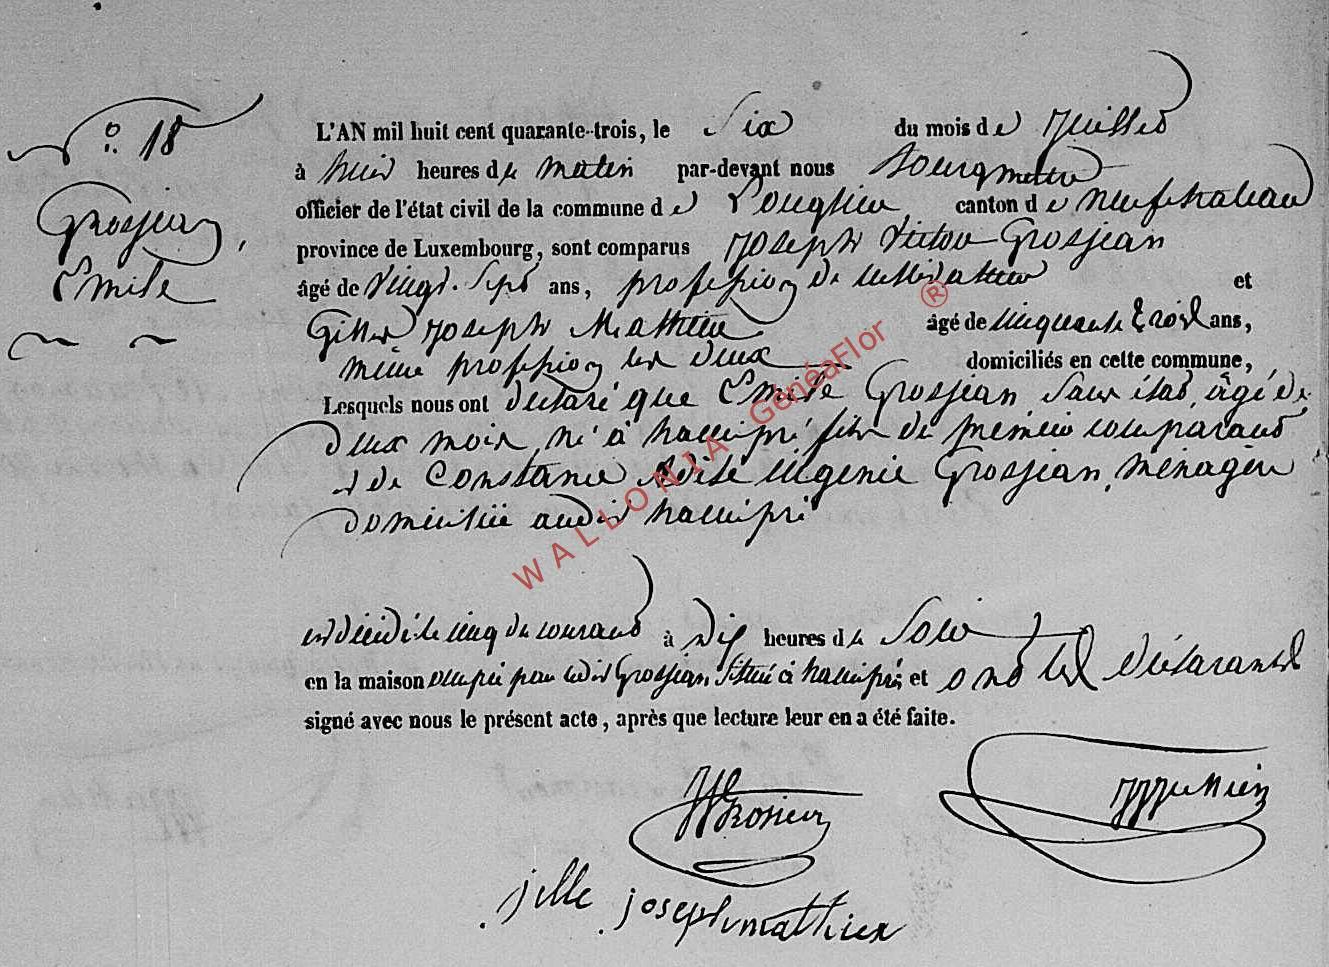 N° 18
Grosjean,
Emile
L'AN mil huit cent quarante-trois, le Six du mois de Juillet
à huit heures de matin par-devant nous Bourgmestre
officier de l'état civil de la commune de Longlier, canton de Neufchateau
province de Luxembourg, sont comparus Joseph Victor Grosjean
âgé de vingt-sept ans, profession de cultivateur et
Gille Joseph Mathieu âgé de cinquante trois ans,
même profession les deux domiciliés en cette commune,
Lesquels nous ont déclaré que Emile Grosjean, sans état, âgé de
deux mois, né à hamipré fils du premier comparant
et de Constance Adile Eugenie Grosjean, ménagère
domiciliée audit hamipré
est décédé le cinq du courant à dix heures de Soir
en la maison occupée par ledit Grosjean située à hamipré, et ont les déclarants
signé avec nous le présent acte, après que lecture leur en a été faite.
jille joseph mathieu
WALLONIA GénéaFlor ®